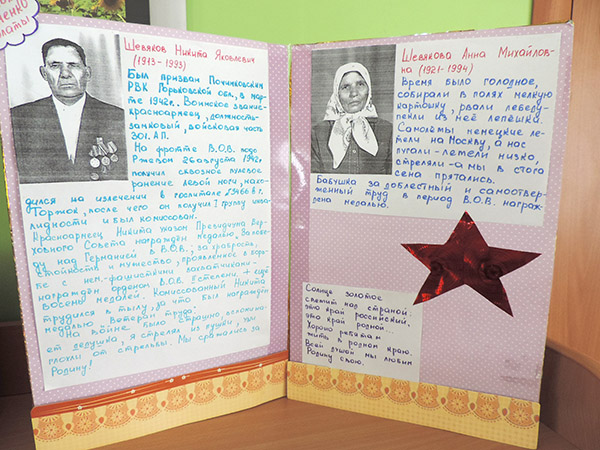 ЕНКО
ЛАТЫ
Шевяков Никита Яковлевич
(1913-1993)
Был призван Починковским
РВК Горьковской обл., в мар-
те 1942г. Воинское звание-
красноармеец, должность-
замковый, войсковая часть
301. АП.
На фронте В.О.В. подо
Ржевом 26 августа 1942г.
получил сквозное пулевое
ранение левой ноги, нахо-
дился на излечении в госпитале 2966 в г.
Торжок, после чего он получил 1 группу инва-
лидности и был комиссован.
Красноармеец Никита указом Президиума Вер-
ховного Совета награждён медалью За побе-
ду над Германией в В.О.В., за храбрость,
стойкость и мужество, проявленное в борь-
бе с нем.-фашистскими захватчиками-
награждён орденом В.О.В. II степени + ещё
восемь медалей. Комиссованный Никита
трудился в тылу, за что был награждён
медалью Ветеран труда.
На войне было страшно, вспомина-
ет дедушка, я стрелял из пушки, мы
глохли от стрельбы. Мы сражались за
Родину!
Шевякова Анна Михайлов-
на (1921-1994)
Время было голодное,
собирали в полях мелкую
картошку, рвали лебеду-
пекли из неё лепёшка.
Самолёты немецкие ле-
тели на Москву, а нас
пугали-летели низко,
стреляли-а мы в стога
сена прятались.
Бабушка за доблестный и самоотвер-
женный труд в период В.О.В. награж-
дена медалью.
Солнце золотое
светит над страной.
это край российский,
это край родной.
Хорошо ребятам
жить в родном краю.
Всей душой мы любим
Родину свою.